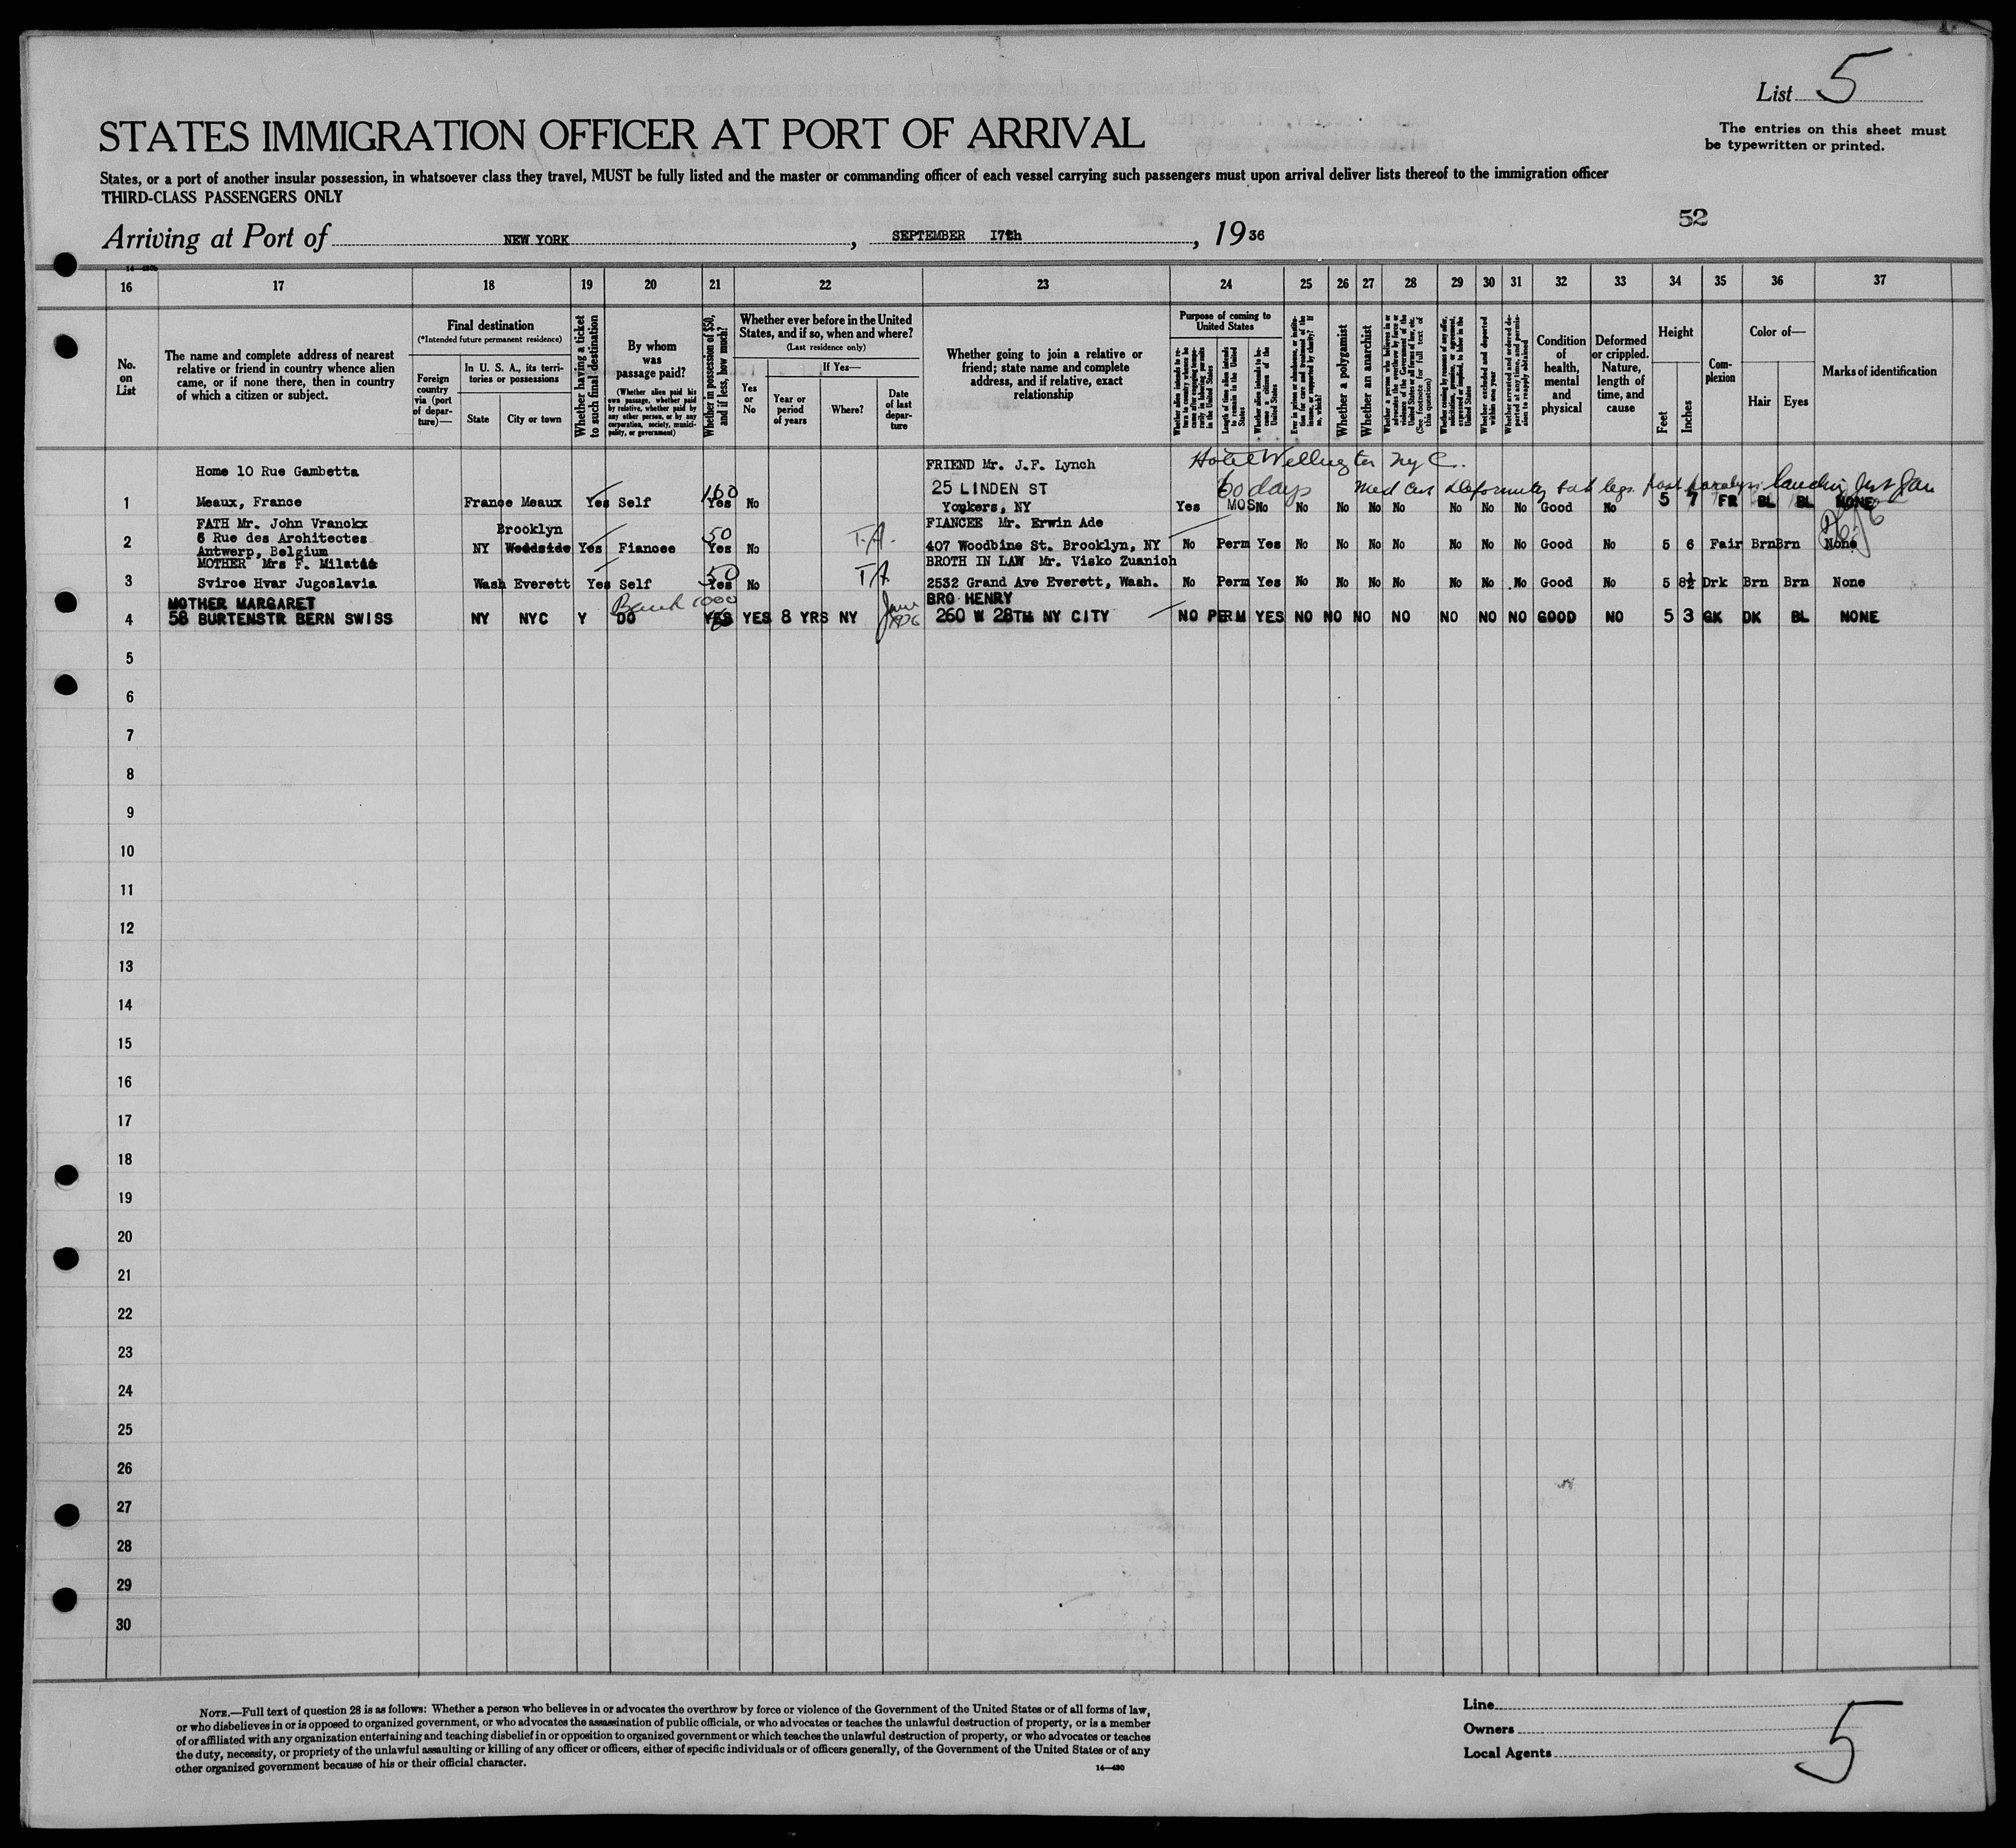 List 5
STATES IMMIGRATION OFFICER AT PORT OF ARRIVAL
The entries on this sheet must
be typewritten or printed.
States, or a port of another insular possession, in whatsoever class they travel, MUST be fully listed and the master or commanding officer of each vessel carrying such passengers must upon arrival deliver lists thereof to the immigration officer
THIRD-CLASS PASSENGERS ONLY
52
Arriving at Port of NEW YORK, SEPTEMBER 17th, 1936
16 17 18 19 20 21 22 23 24 25 26 27 28 29 30 31 32 33 34 35 36 37
No. on List
The name and complete address of nearest relative or friend in country whence alien came, or if none there, then in country of which a citizen or subject.
Final destination
(*Intended future permanent residence)
Foreign country via (port of departure)—
In U. S. A., its territories or possessions
State
City or town
Whether having a ticket to such final destination
By whom was passage paid?
(Whether alien paid his own passage, whether paid by relative, whether paid by any other person, or by any corporation, society, municipality, or government)
Whether in possession of $50, and if less, how much?
Whether ever before in the United States, and if so, when and where?
(Last residence only)
Yes or No
If Yes—
Year or period of years
Where?
Date of last departure
Whether going to join a relative or friend; state name and complete address, and if relative, exact relationship
Purpose of coming to United States
Length of time alien intends to remain in the United States
Whether alien intends to become a citizen of the United States
Whether a polygamist
Whether an anarchist
(See footnote for full text of this question)
Whether excluded and deported within one year
Condition of health, mental and physical
Deformed or crippled. Nature, length of time, and cause
Height
Feet
Inches
Complexion
Color of—
Hair
Eyes
Marks of identification
Home 10 Rue Gambetta FRIEND Mr. J.F. Lynch Hotel Wellington NYC.
25 LINDEN ST 60 days Med Cert Deformity both legs
1 Meaux, France France Meaux Yes Self 100 Yes No Yonkers, NY Yes MOS No No No No No No No No Good No 5 7 FR BL BL NONE
FATH Mr. John Vranckx Brooklyn FIANCEE Mr. Erwin Ade
2 6 Rue des Architectes NY Woodside Yes Fiancee 50 Yes No T.A. 407 Woodbine St. Brooklyn, NY No Perm Yes No No No No No No No Good No 5 6 Fair Brn Brn None
Antwerp, Belgium
MOTHER Mrs F. Milatić BROTH IN LAW Mr. Visko Zuanich
3 Svirce Hvar Jugoslavia Wash Everett Yes Self 50 Yes No TA 2532 Grand Ave Everett, Wash. No Perm Yes No No No No No No No Good No 5 8½ Drk Brn Brn None
MOTHER MARGARET Bank 1000 BRO HENRY
4 58 BURTENSTR BERN SWISS NY NYC Y DO YES YES 8 YRS NY 1936 260 W 28TH NY CITY NO PERM YES NO NO NO NO NO NO NO GOOD NO 5 3 GK DK BL NONE
5
6
7
8
9
10
11
12
13
14
15
16
17
18
19
20
21
22
23
24
25
26
27
28
29
30
NOTE.—Full text of question 28 is as follows: Whether a person who believes in or advocates the overthrow by force or violence of the Government of the United States or of all forms of law,
or who disbelieves in or is opposed to organized government, or who advocates the assassination of public officials, or who advocates or teaches the unlawful destruction of property, or is a member
of or affiliated with any organization entertaining and teaching disbelief in or opposition to organized government or which teaches the unlawful destruction of property, or who advocates or teaches
the duty, necessity, or propriety of the unlawful assaulting or killing of any officer or officers, either of specific individuals or of officers generally, of the Government of the United States or of any
other organized government because of his or their official character.
14—430
Line
Owners
Local Agents
5